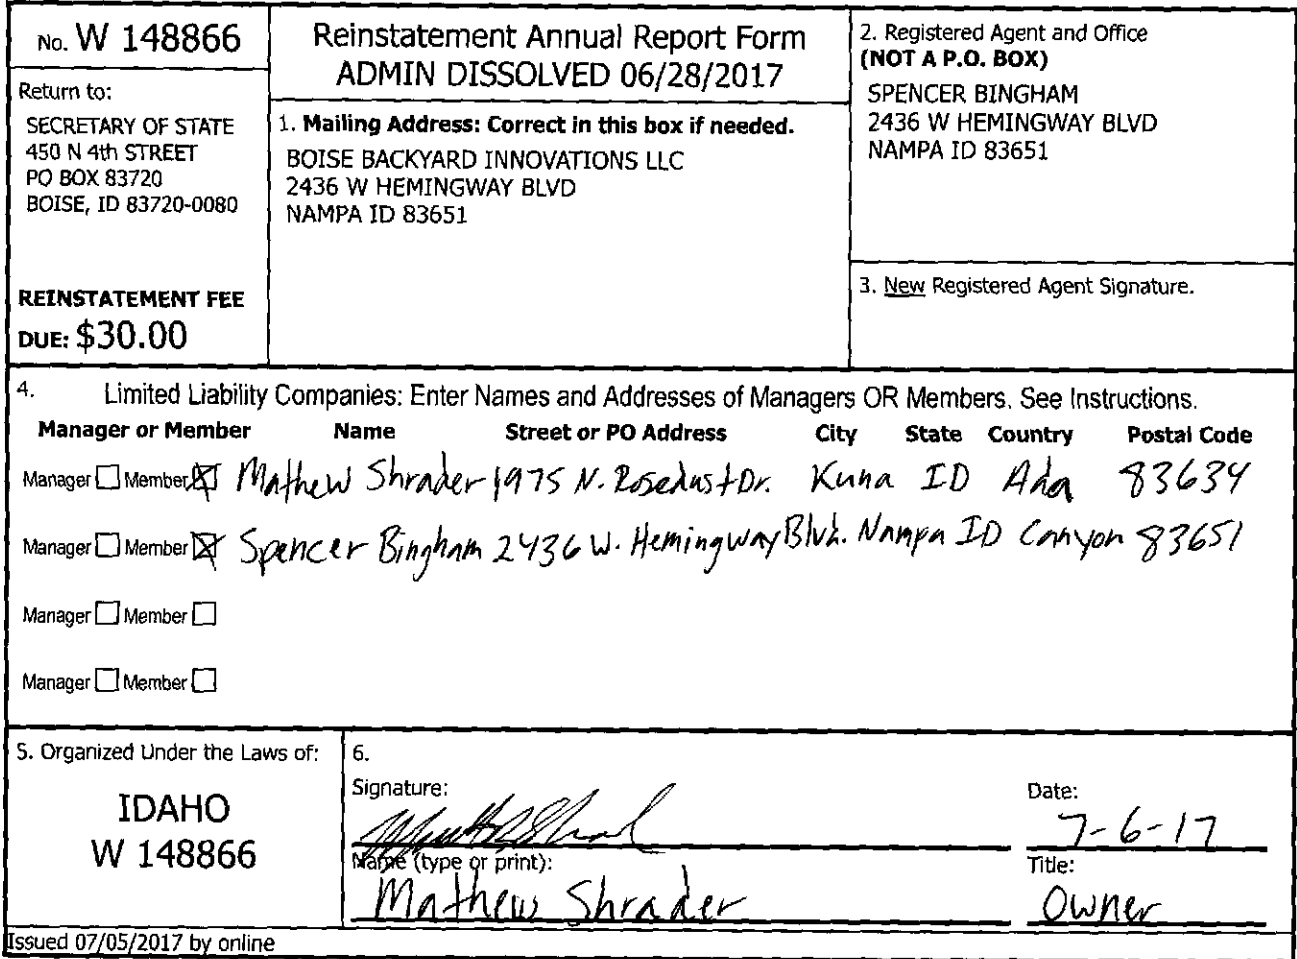 No. W 148866
Return to:
SECRETARY OF STATE
450 N 4th STREET
PO BOX 83720
BOISE, ID 83720-0080
REINSTATEMENT FEE
DUE: $30.00
Reinstatement Annual Report Form
ADMIN DISSOLVED 06/28/2017
1. Mailing Address: Correct in this box if needed.
BOISE BACKYARD INNOVATIONS LLC
2436 W HEMINGWAY BLVD
NAMPA ID 83651
2. Registered Agent and Office
(NOT A P.O. BOX)
SPENCER BINGHAM
2436 W HEMINGWAY BLVD
NAMPA ID 83651
3. New Registered Agent Signature.
4. Limited Liability Companies: Enter Names and Addresses of Managers OR Members. See Instructions.
Manager or Member Name Street or PO Address City State Country Postal Code
Manager Member Mathew Shrader 1975 N. Rosedust Dr. Kuna ID Ada 83634
Manager Member Spencer Bingham 2436 W. Hemingway Blvd. Nampa ID Canyon 83651
Manager Member
Manager Member
5. Organized Under the Laws of:
IDAHO
W 148866
6.
Signature:
Date:
7-6-17
Name (type or print):
Mathew Shrader
Title:
Owner
Issued 07/05/2017 by online